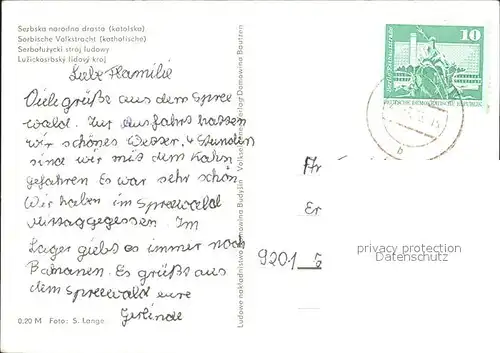 Serbska narodna drasta (katolska)
Sorbische Volkstracht (katholische)
Serbołużycki strój ludowy
Lužickosrbský lidový kroj
Liebe Familie
Viele grüße aus dem Spree
wald. Zur Ausfahrt hatten
wir schönes Wetter. 4 Stunden
sind wir mit dem Kahn
gefahren Es war sehr schön
Wir haben im Spreewald
Mittaggegessen. Im
Lager giebts es immer noch
Bananen. Es grüßt aus
dem Spreewald eure
Gerlinde
0,20 M Foto: S. Lange
Ludowe nakładnistwo Domowina Budyšin Volkseigener Verlag Domowina Bautzen
10
DEUTSCHE DEMOKRATISCHE REPUBLIK
Er
9201
privacy protection
Datenschutz